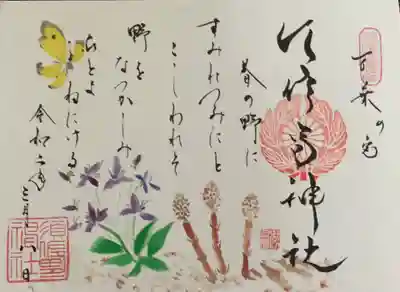 万葉の
神社
春の野に
すみれつみにと
こしわれそ
野を
なつかしみ
ひとよ
ねにける
令和二年
三月八日